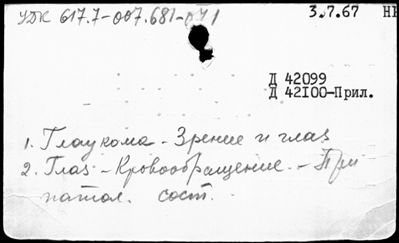 УДК 617.7-007.681-
3.7.67
Д 42099
Д 42100-Прил.
1. Глаукома - Зрение и глаз
2. Глаз - Кровообращение. - При
патол. сост.